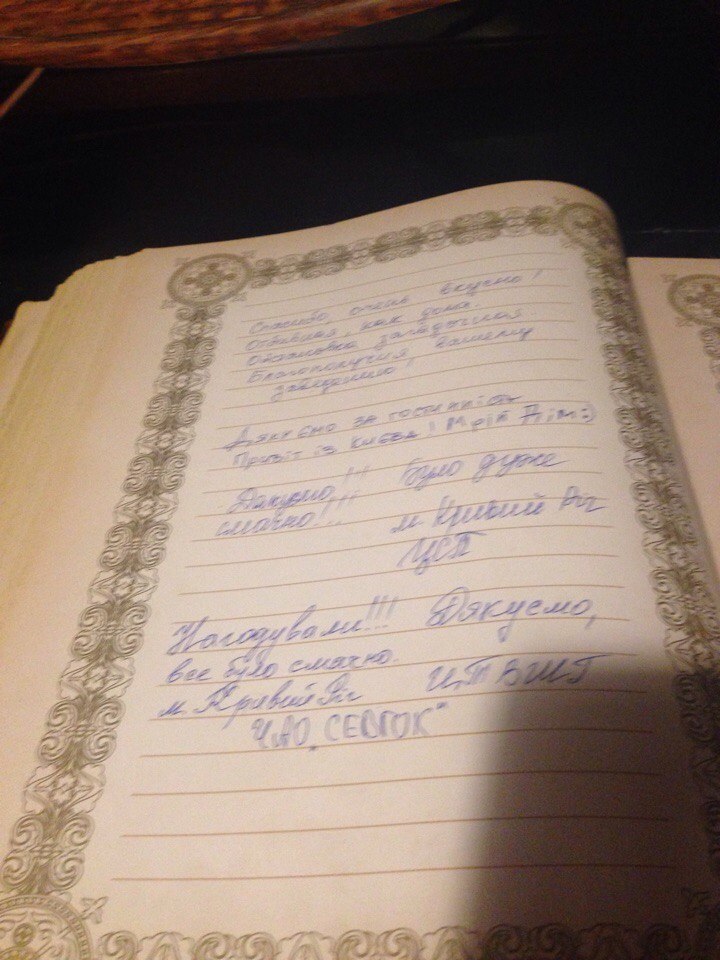 Спасибо, очень вкусно!
Отличная, как дома.
Обстановка загадочная
Благополучия, вашему
заведению!
Дякуємо за гостинність
Привіт із Києва! Мрій Дім:)
Дякуємо!!! Було дуже
смачно!!!
м. Кривий Ріг
ЦСП
Нагодували!!! Дякуємо,
все було смачно.
м. Кривий Ріг
ЧАО "СЕВГОК"